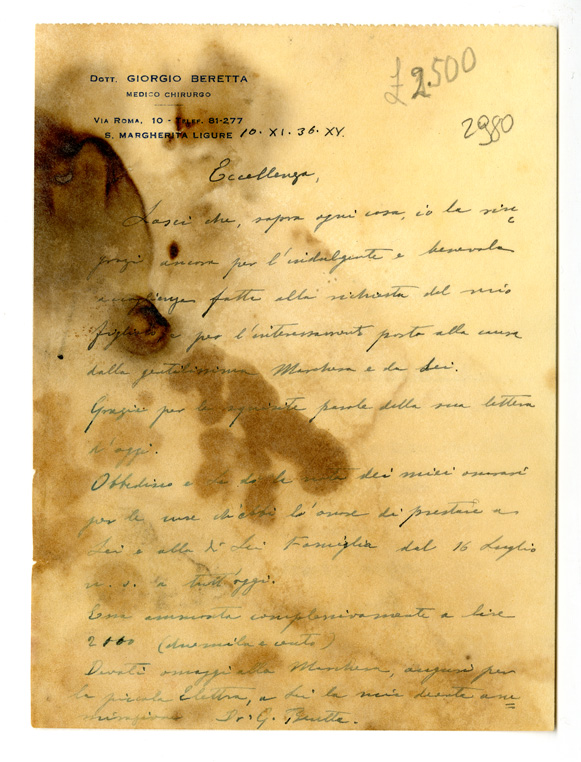 £ 2.500
2980
Dott. GIORGIO BERETTA
MEDICO CHIRURGO
VIA ROMA, 10 - TELEF. 81-277
S. MARGHERITA LIGURE 10. XI. 36. XV.
Eccellenza,
Lasci che, sopra ogni cosa, io la rin-
grazi ancora per l'indulgente e benevola
accoglienza fatta alla richiesta del mio
figliolo e per l'interessamento posto alla cosa
dalla gentilissima Marchesa e da Lei.
Grazie per le squisite parole della sua lettera
d'oggi.
Obbedisco e Le do la nota dei miei onorari
per le cure ch'ebbi l'onore di prestare a
Lei e alla di Lei Famiglia dal 16 Luglio
u. s. a tutt'oggi.
Essa ammonta complessivamente a lire
2100 (duemila e cento)
Devoti omaggi alla Marchesa, auguri per
la piccola Elettra, a Lei la mia devota am=
mirazione Dr. G. Beretta.